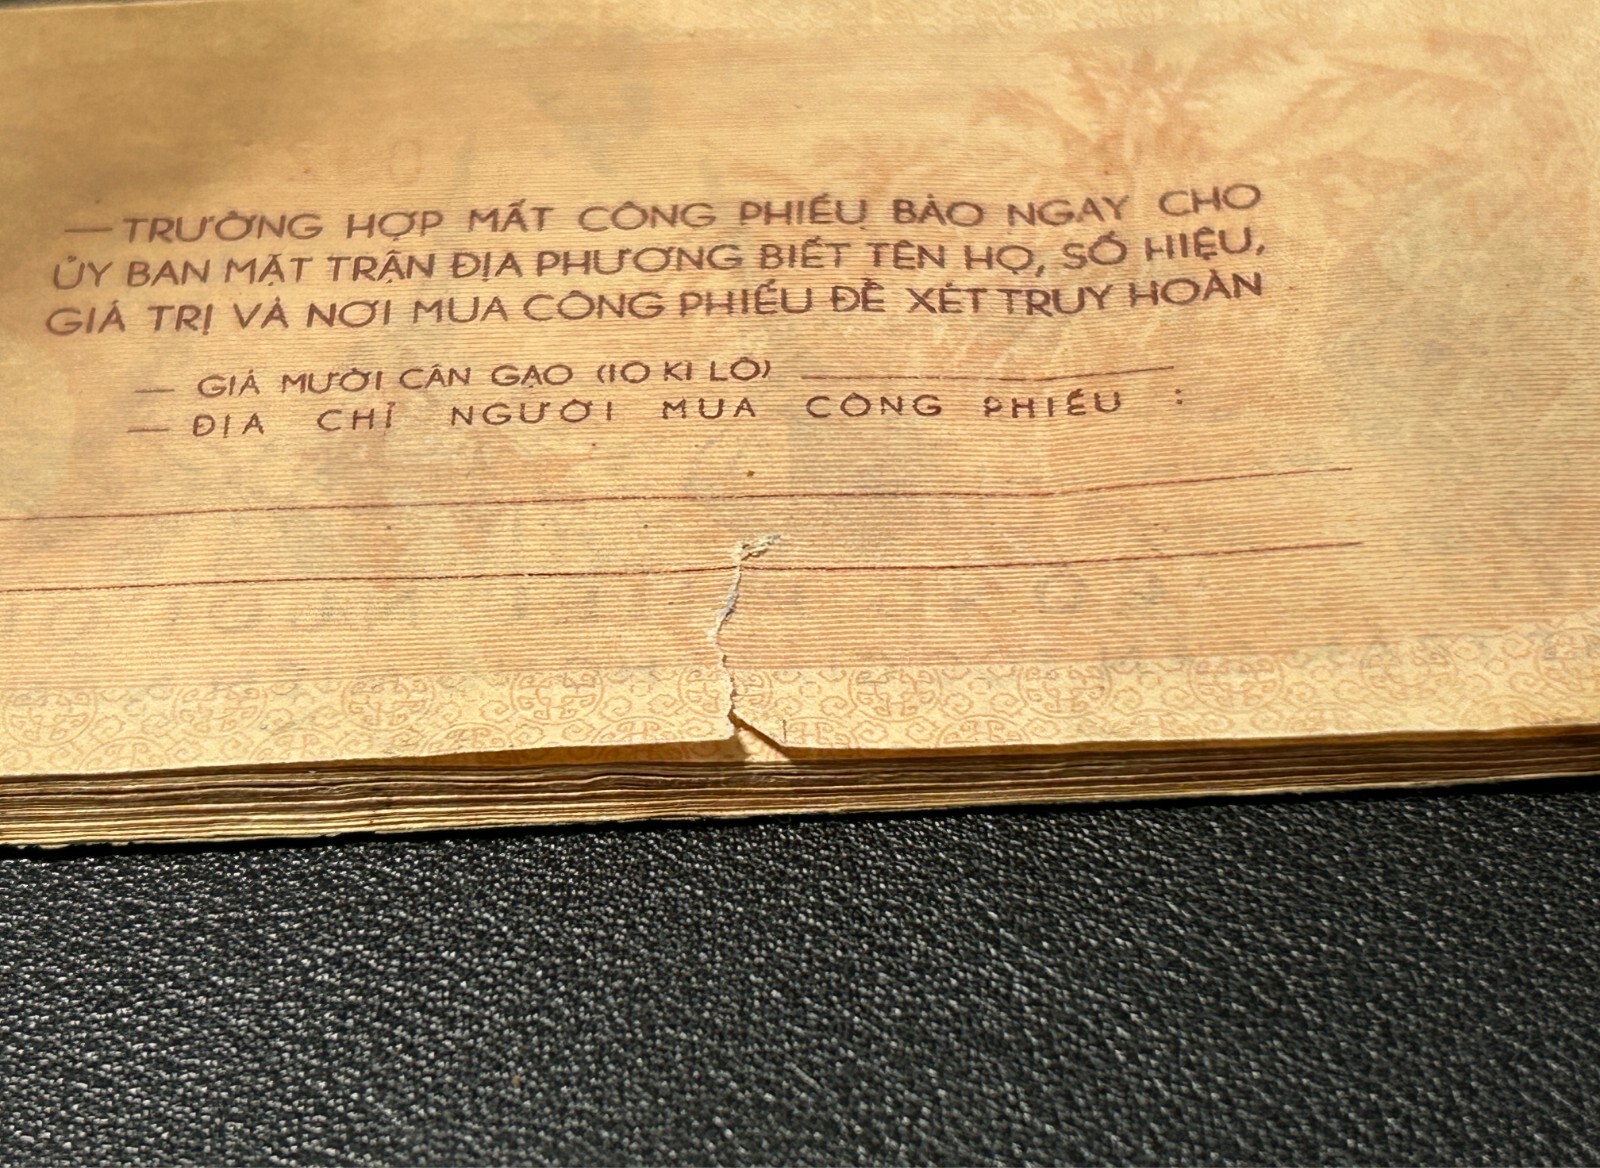 — TRƯỜNG HỢP MẤT CÔNG PHIẾU BÁO NGAY CHO
ỦY BAN MẶT TRẬN ĐỊA PHƯƠNG BIẾT TÊN HỌ, SỐ HIỆU,
GIÁ TRỊ VÀ NƠI MUA CÔNG PHIẾU ĐỂ XÉT TRUY HOÀN
— GIÁ MƯỜI CÂN GẠO (10 KI LÔ)
— ĐỊA CHỈ NGƯỜI MUA CÔNG PHIẾU :